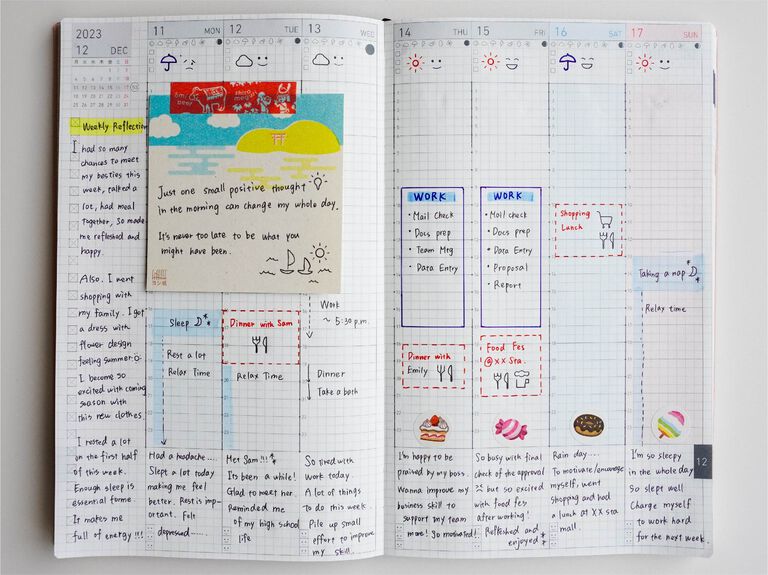 2023
12 DEC
11 MON
12 TUE
13 WED
14 THU
15 FRI
16 SAT
17 SUN
Weekly Reflection
I had so many
chances to meet
my besties this
week, talked a
lot, had meal
together, so made
me refleshed and
happy.
Also. I went
shopping with
my family. I got
a dress with
flower design
feeling summer
I become so
excited with coming
season with
this new clothes
I rested a lot
on the first half
of this week.
Enough sleep is
essential for me.
It makes me
full of energy!!!
Just one small positive thought
in the morning can change my whole day.
It's never too late to be what you
might have been.
Sleep
Rest a lot
Relax Time
Had a headache....
Slept a lot today
making me feel
better. Rest is imp-
ortant. Felt
depressed.....
Dinner with Sam
Relax Time
Met Sam!!!
Its been a while!
Glad to meet her.
Reminded me
of my high school
life
Work
~ 5:30 p.m.
Dinner
Take a bath
So tired with
work today.
A lot of things
to do this week.
Pile up small
effort to improve
my skill.
WORK
・Mail Check
・Docs prep
・Team Mtg
・Data Entry
Dinner with
Emily
I'm happy to be
praised by my boss.
Wanna improve my
business skill to
support my team
more! So motivated!
WORK
・Mail check
・Docs prep
・Data Entry
・Proposal
・Report
Food Fes
@ XX Sta.
So busy with final
check of the approval
but so excited
with food fes
after working!
Refleshed and
enjoyed
Shopping
Lunch
Rain day....
To motivate/encourage
myself, went
shopping and had
a lunch at XX sta
mall.
Taking a nap
Relax time
I'm so sleepy
in the whole day
So slept well
Charge myself
to work hard
for the next week.
12